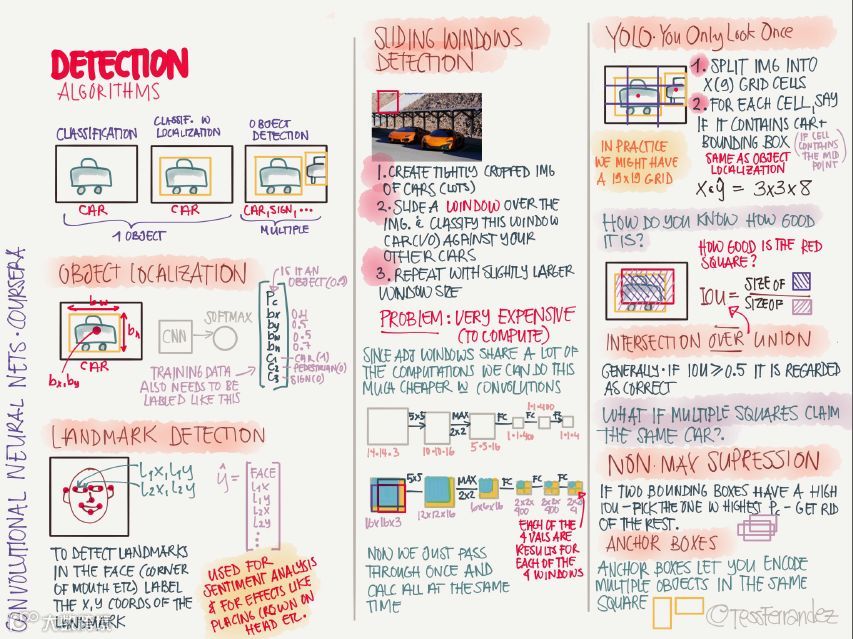 CONVOLUTIONAL NEURAL NETS · COURSERA
DETECTION
ALGORITHMS
CLASSIFICATION
CLASSIF. W
LOCALIZATION
OBJECT
DETECTION
CAR
CAR
CAR, SIGN, ...
1 OBJECT
MULTIPLE
OBJECT LOCALIZATION
IS IT AN
OBJECT (0.9)
bw
bh
bx,by
CAR
CNN
SOFTMAX
Pc
bx 0.4
by 0.5
bw 0.5
bh 0.7
C1 - CAR (1)
C2 - PEDESTRIAN (0)
C3 - SIGN (0)
TRAINING DATA
ALSO NEEDS TO BE
LABELED LIKE THIS
LANDMARK DETECTION
L1X, L1Y
L2X, L2Y
ŷ =
FACE
L1X
L1Y
L2X
L2Y
⋮
TO DETECT LANDMARKS
IN THE FACE (CORNER
OF MOUTH ETC) LABEL
THE X,Y COORDS OF THE
LANDMARK
USED FOR
SENTIMENT ANALYSIS
& FOR EFFECTS LIKE
PLACING CROWN ON
HEAD ETC.
SLIDING WINDOWS
DETECTION
1. CREATE TIGHTLY CROPPED IMG
OF CARS (LOTS)
2. SLIDE A WINDOW OVER THE
IMG. & CLASSIFY THIS WINDOW
CAR (1/0) AGAINST YOUR
OTHER CARS
3. REPEAT WITH SLIGHTLY LARGER
WINDOW SIZE
PROBLEM: VERY EXPENSIVE
(TO COMPUTE)
SINCE ADJ WINDOWS SHARE A LOT OF
THE COMPUTATIONS WE CAN DO THIS
MUCH CHEAPER W CONVOLUTIONS
5x5 MAX 2x2 FC FC
1·1·400
14·14·3 10·10·16 5·5·16 1·1·400 1·1·4
5x5 MAX 2x2 FC FC FC
16x16x3 12x12x16 6x6x16 2x2x400 2x2x400
EACH OF THE
4 VALS ARE
RESULTS FOR
EACH OF THE
4 WINDOWS
NOW WE JUST PASS
THROUGH ONCE AND
CALC ALL AT THE SAME
TIME
YOLO · You Only Look Once
1. SPLIT IMG INTO
X (9) GRID CELLS
2. FOR EACH CELL, SAY
IF IT CONTAINS CAR +
BOUNDING BOX
(IF CELL
CONTAINS
THE MID
POINT)
IN PRACTICE
WE MIGHT HAVE
A 19x19 GRID
SAME AS OBJECT
LOCALIZATION
X & Ŷ = 3x3x8
HOW DO YOU KNOW HOW GOOD
IT IS?
HOW GOOD IS THE RED
SQUARE?
IOU =
SIZE OF
SIZE OF
INTERSECTION OVER UNION
GENERALLY · IF IOU ≥ 0.5 IT IS REGARDED
AS CORRECT
WHAT IF MULTIPLE SQUARES CLAIM
THE SAME CAR?
NON-MAX SUPRESSION
IF TWO BOUNDING BOXES HAVE A HIGH
IOU - PICK THE ONE W HIGHEST Pc - GET RID
OF THE REST.
ANCHOR BOXES
ANCHOR BOXES LET YOU ENCODE
MULTIPLE OBJECTS IN THE SAME
SQUARE
@TessFerrandez